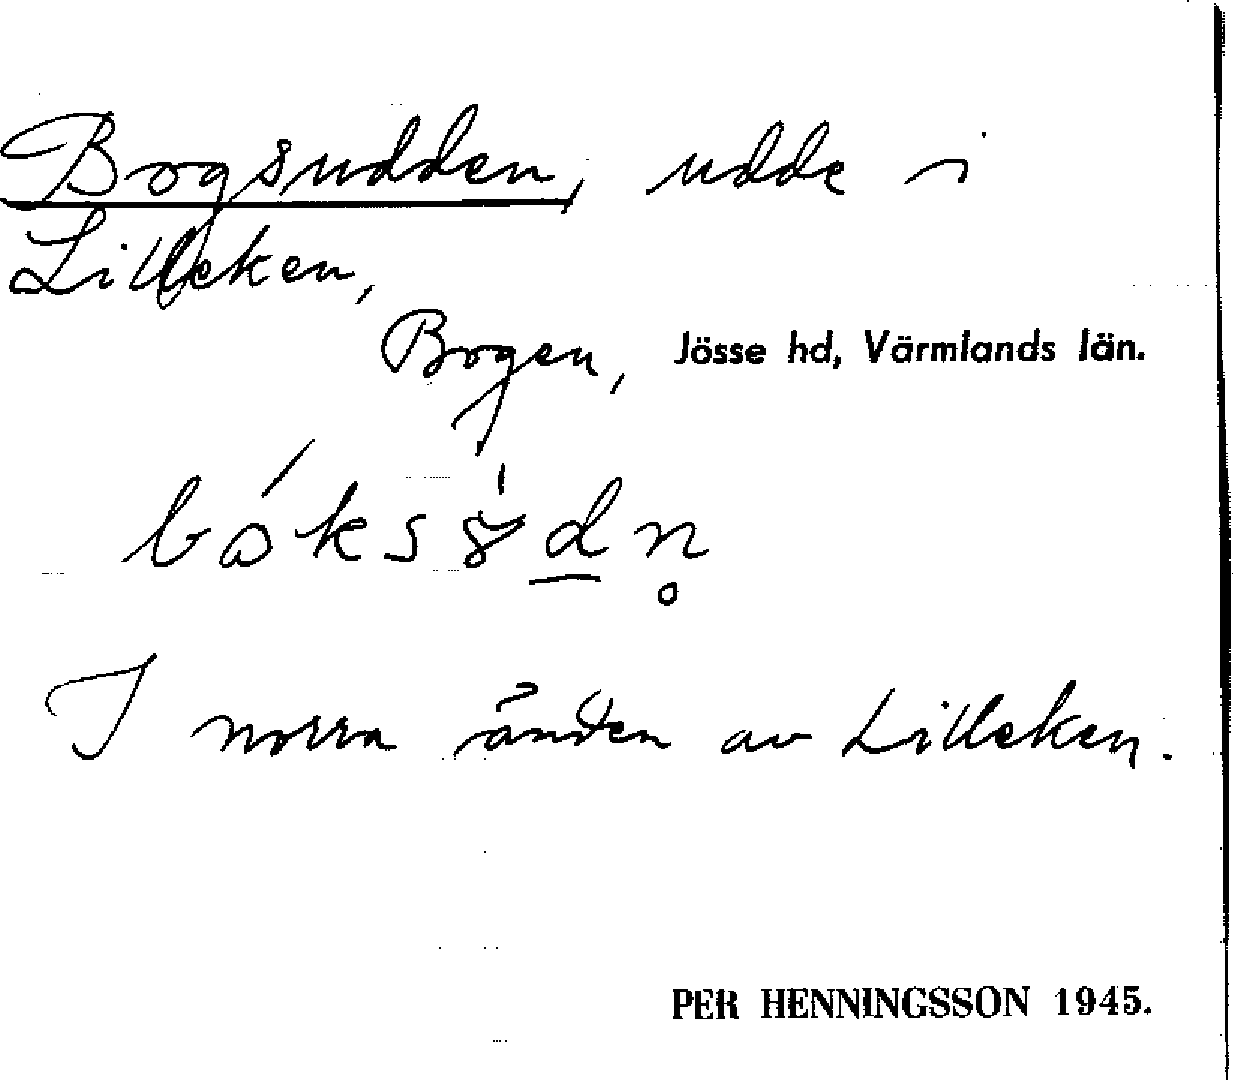 Bogsudden, udde i
Lilleken,
Bogen, Jösse hd, Värmlands län.
I norra änden av Lilleken.
PER HENNINGSSON 1945.